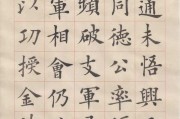 通未悟興
同德公率
頗破支軍
軍相會仍
以功授金